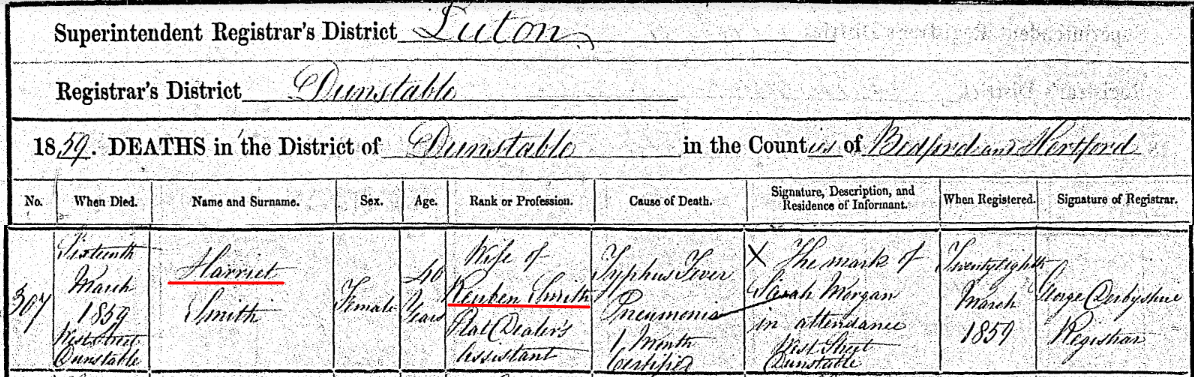 Superintendent Registrar's District Luton
Registrar's District Dunstable
1859. DEATHS in the District of Dunstable in the Counties of Bedford and Hertford
No. When Died. Name and Surname. Sex. Age. Rank or Profession. Cause of Death. Signature, Description, and Residence of Informant. When Registered. Signature of Registrar.
307
Sixteenth
March
1859
West Street
Dunstable
Harriet
Smith
Female
40
Years
Wife of
Reuben Smith
Plat Dealer's
Assistant
Typhus Fever
Pneumonia
1 Month
Certified
X The mark of
Sarah Morgan
in attendance
West Street
Dunstable
Twentyeighth
March
1859
George Derbyshire
Registrar